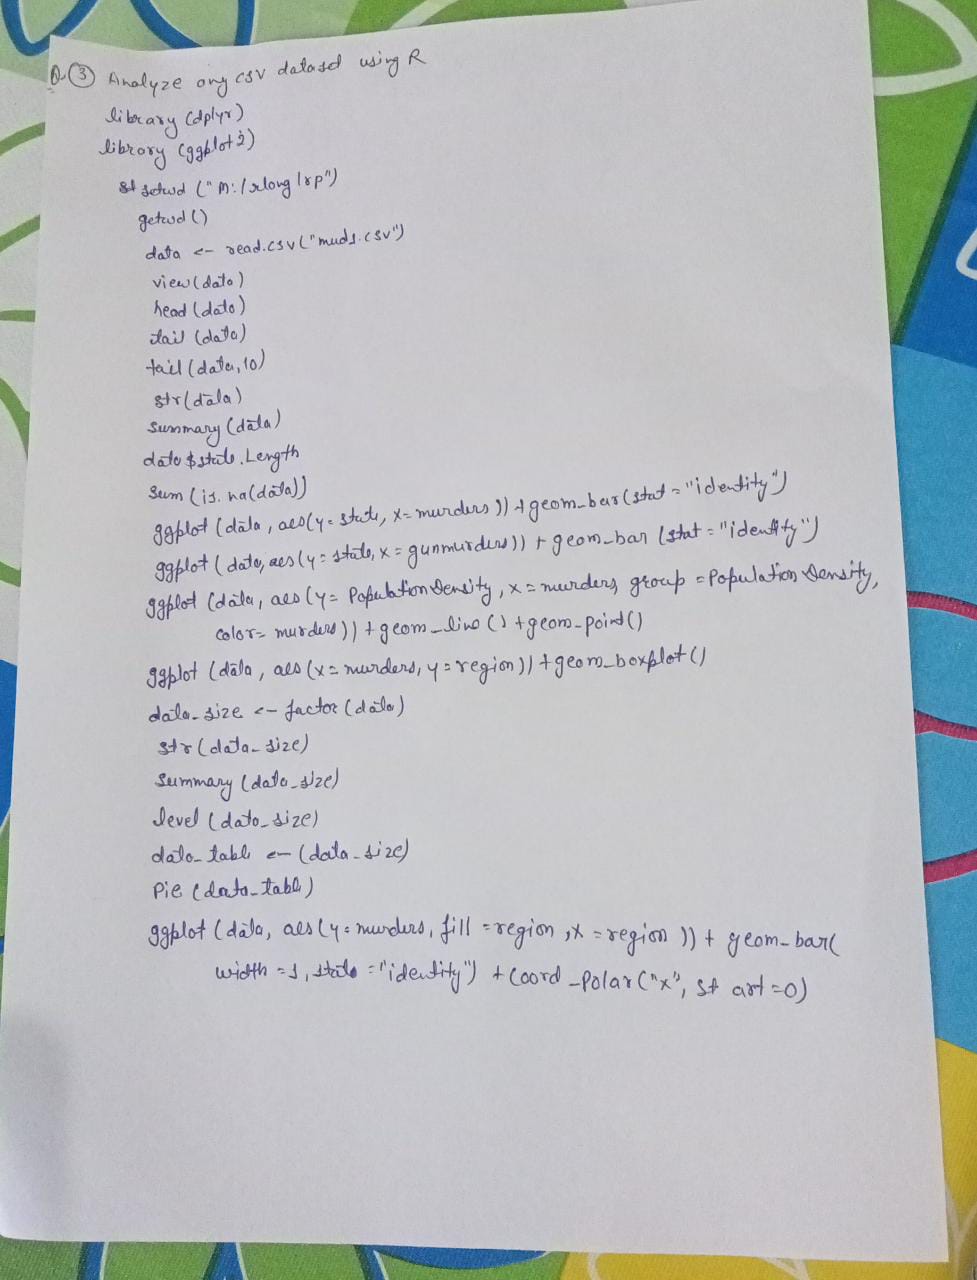 Q.③ Analyze any csv dataset using R
library (dplyr)
library (ggplot2)
setwd ("M:/rlong/rp")
getwd ()
data <- read.csv ("muds.csv")
view (data)
head (data)
tail (data)
tail (data, 10)
str (data)
summary (data)
data $ state. Length
sum (is. na(data))
ggplot (data, aes(y = state, x = murders )) + geom_bar (stat = "identity")
ggplot (data, aes (y = state, x = gunmurders )) + geom_bar (stat = "identity")
ggplot (data, aes (y = PopulationDensity, x = murders, group = Population Density,
color = murders )) + geom_line () + geom-point ()
ggplot (data, aes (x = murders, y = region )) + geom_boxplot ()
data_size <- factor (data)
str (data_size)
summary (data_size)
level (data_size)
data_table <- (data_size)
Pie (data_table)
ggplot (data, aes (y = murders, fill = region, x = region )) + geom-bar (
width = 1, state = "identity") + Coord_Polar ("x", St art = 0)